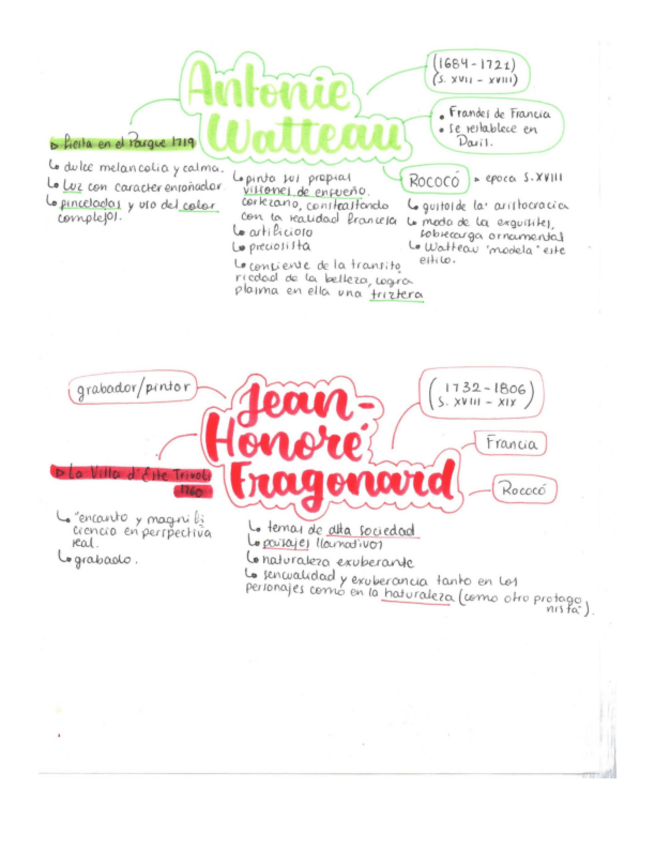 Antonie
Watteau
(1684-1721)
(S. XVII - XVIII)
• Frandes de Francia
• se restablece en
París.
Rococó
→ epoca S.XVIII
↳ gustos de la aristocracia
↳ moda de la exquisites,
sobrecarga ornamental
↳ Watteau "modela" este
estilo.
▷ Fiesta en el Parque 1719
↳ dulce melancolia y calma.
↳ Luz con caracter ensoñador.
↳ pinceladas y uso del color
complejos.
↳ pinta sus propias
visiones de ensueño.
cortezano, constrastando
con la realidad francesa
↳ artificioso
↳ preciosista
↳ consiente de la transito
riedad de la belleza, logra
plasma en ella una triztera
grabador/pintor
Jean-
Honoré
Fragonard
(1732-1806)
S. XVIII - XIX
Francia
Rococó
▷ La Villa d'Este Trivoli
1760
↳ "encanto y magnifi
ciencia en perspectiva
real.
↳ grabado.
↳ temas de alta sociedad
↳ paisajes llamativos
↳ naturaleza exuberante
↳ sensualidad y exuberancia tanto en los
personajes como en la naturaleza (como otro protago
nista").